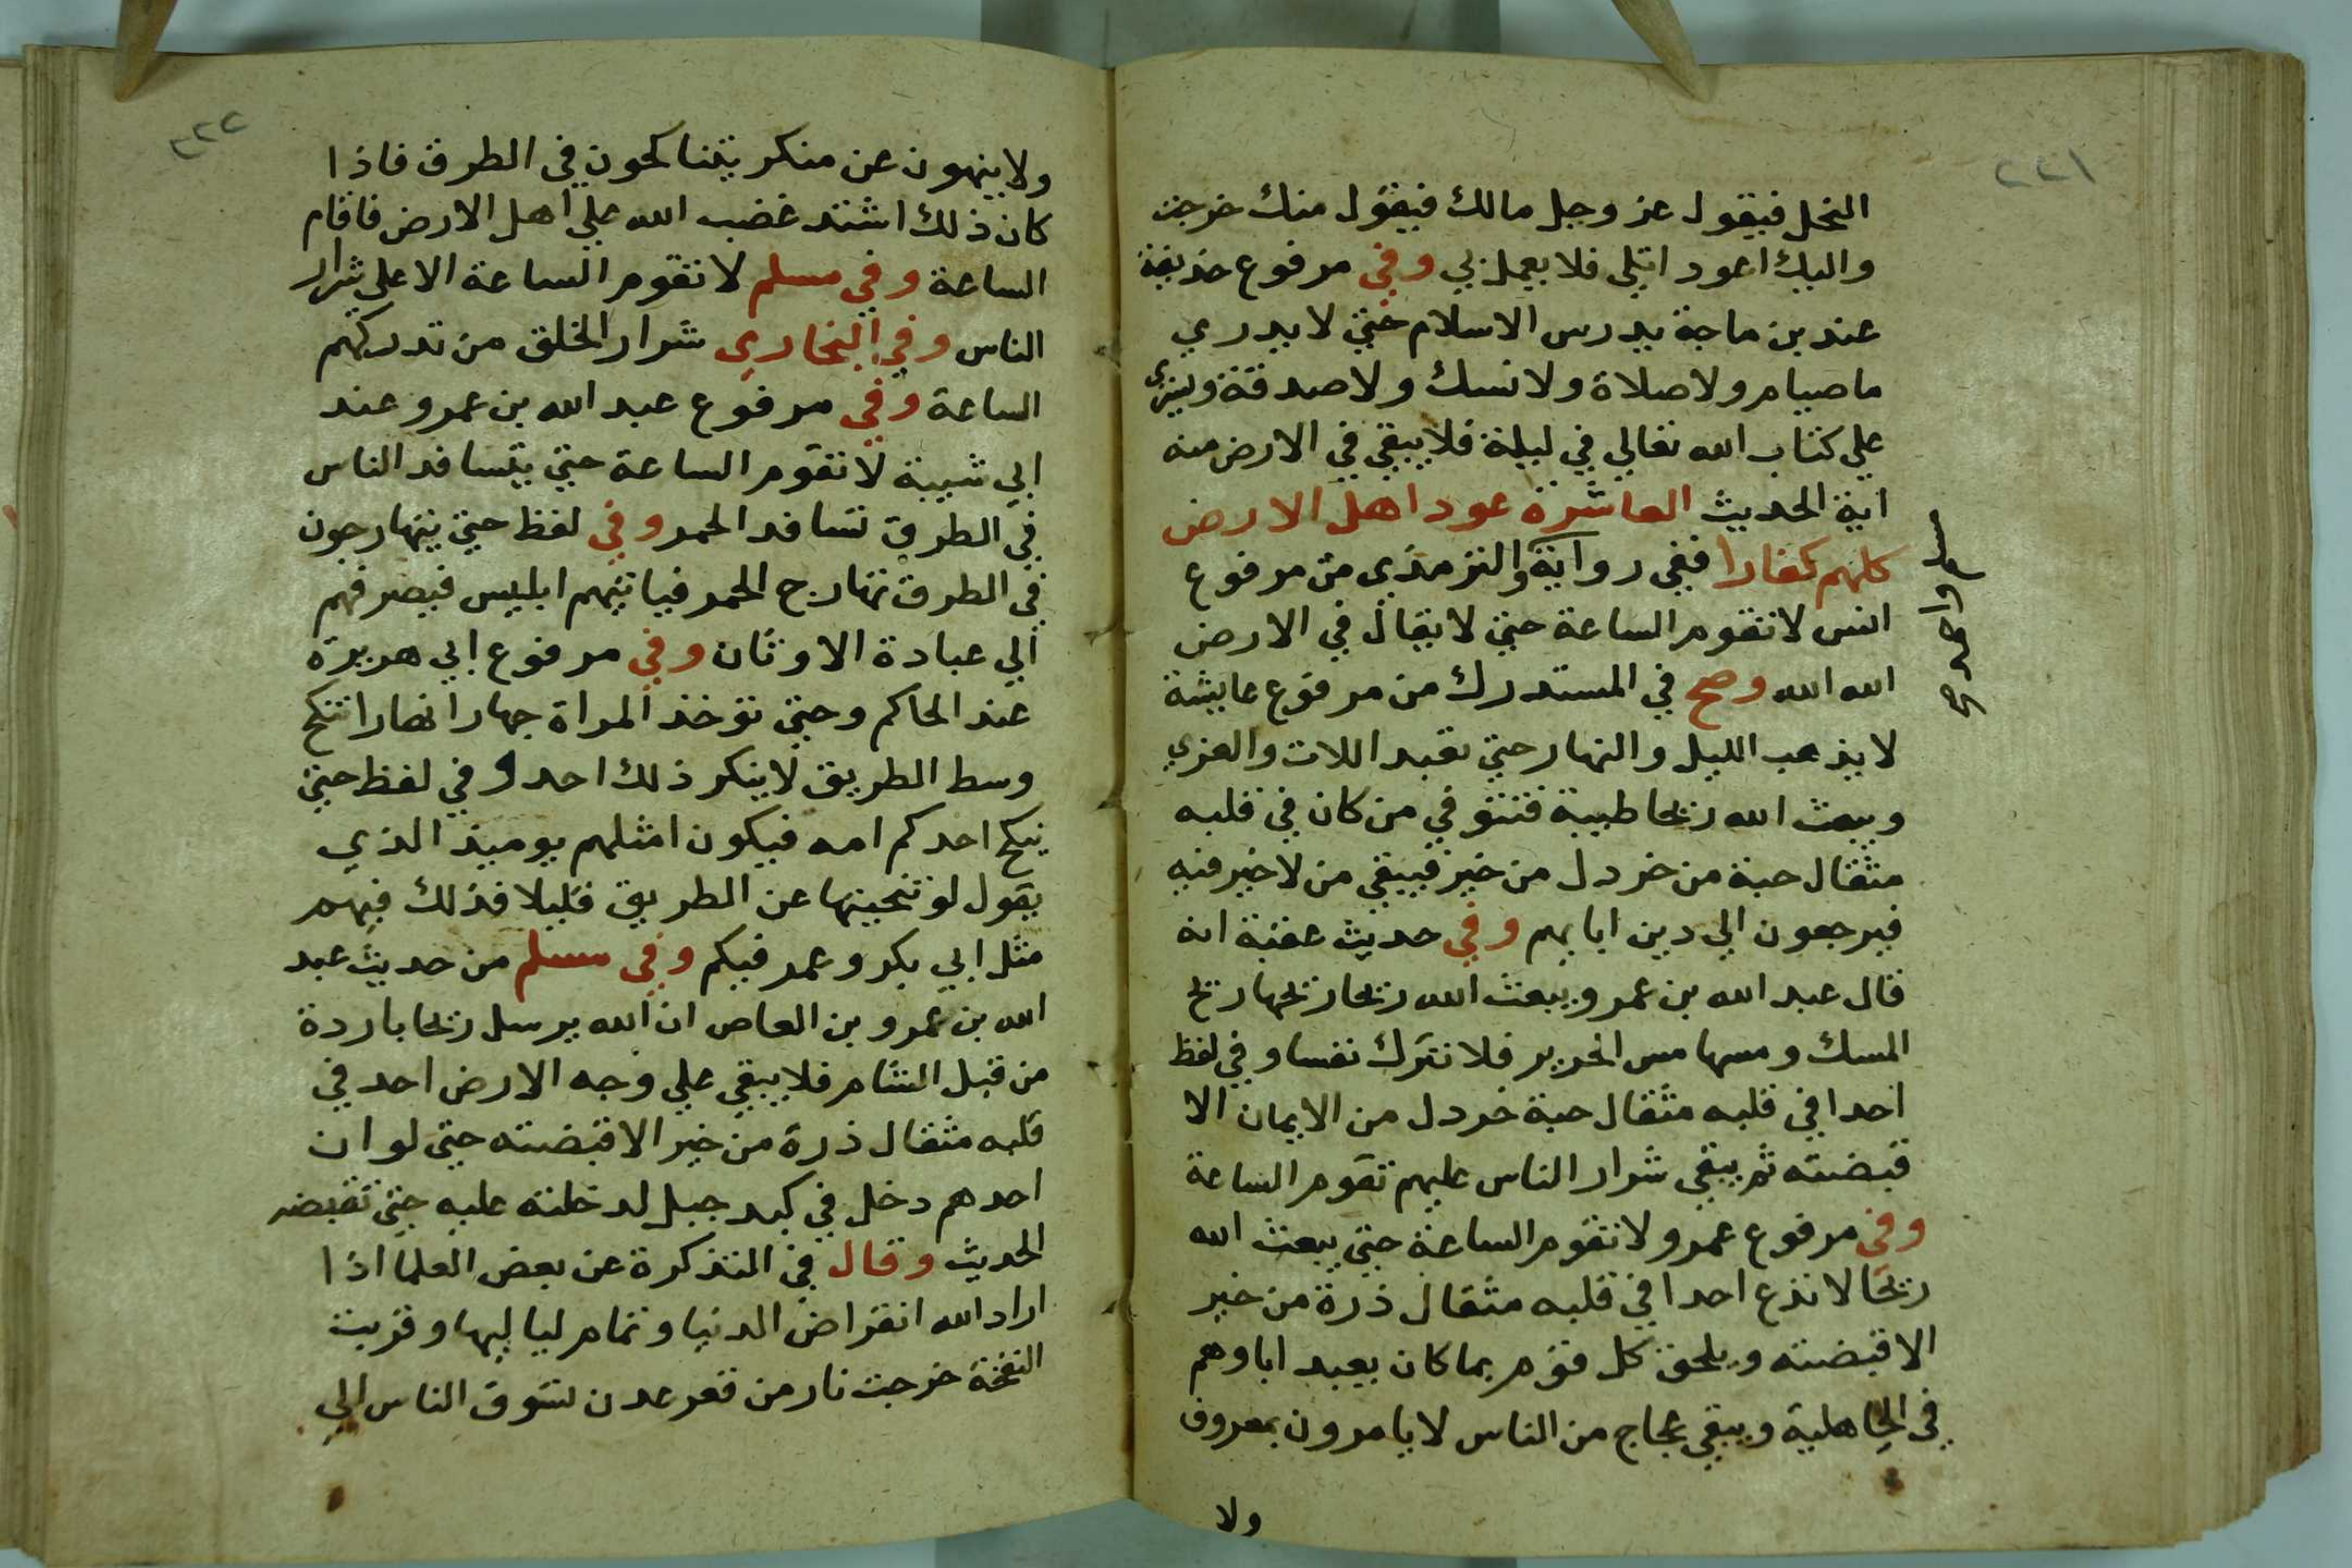 ٢٢١
النحل فيقول عز وجل مالك فيقول منك خرجت
واليك اعود اتلي فلا يعمل بي وفي مرفوع حذيفة
عند بن ماجة يدرس الاسلام حتي لا يدري
ما صيام ولا صلاة ولا نسك ولا صدقة ويسري
علي كتاب الله تعالي في ليلة فلا يبقي في الارض منه
اية الحديث العاشرة عود اهل الارض
كلهم كفارا ففي رواية والترمذي من مرفوع
مسلم واحمد صح
انس لا تقوم الساعة حتي لا يقال في الارض
الله الله وصح في المستدرك من مرفوع عايشة
لا يذهب الليل والنهار حتي تعبد اللات والعزي
ويبعث الله ريحا طيبة فتتوفي من كان في قلبه
مثقال حبة من خردل من خير فيبقي من لا خير فيه
فيرجعون الي دين ابايهم وفي حديث عقبة انه
قال عبد الله بن عمرو يبعث الله ريحا ريحها ريح
المسك ومسها مس الحرير فلا تترك نفسا وفي لفظ
احدا في قلبه مثقال حبة خردل من الايمان الا
قبضته ثم يبقي شرار الناس عليهم تقوم الساعة
وفي مرفوع عمرو لا تقوم الساعة حتي يبعث الله
ريحا لا تذع احدا في قلبه مثقال ذرة من خير
الا قبضته ويلحق كل قوم بما كان يعبد اباوهم
في الجاهلية ويبقي عجاج من الناس لا يامرون بمعروف
ولا
٢٢٢
ولا ينهون عن منكر يتناكحون في الطرق فاذا
كان ذلك اشتد غضب الله علي اهل الارض فاقام
الساعة وفي مسلم لا تقوم الساعة الا علي شرار
الناس وفي البخاري شرار الخلق من تدركهم
الساعة وفي مرفوع عبد الله بن عمرو عند
ابي شيبة لا تقوم الساعة حتي يتسافد الناس
في الطرق تسافد الحمر وفي لفظ حتي يتهارجون
في الطرق تهارج الحمر فياتيهم ابليس فيصرفهم
الي عبادة الاوثان وفي مرفوع ابي هريرة
عند الحاكم وحتي توخذ المراة جهارا نهارا تنكح
وسط الطريق لا ينكر ذلك احد وفي لفظ حتي
ينكح احدكم امه فيكون امثلهم يوميذ الذي
يقول لو نحيتها عن الطريق قليلا فذلك فيهم
مثل ابي بكر وعمر فيكم وفي مسلم من حديث عبد
الله بن عمرو بن العاص ان الله يرسل ريحا باردة
من قبل الشام فلا يبقي علي وجه الارض احد في
قلبه مثقال ذرة من خير الا قبضته حتي لو ان
احدهم دخل في كبد جبل لدخلته عليه حتي تقبضه
الحديث وقال في التذكرة عن بعض العلما اذا
اراد الله انقراض الدنيا وتمام لياليها وقربت
النفخة خرجت نار من قعر عدن تسوق الناس الي